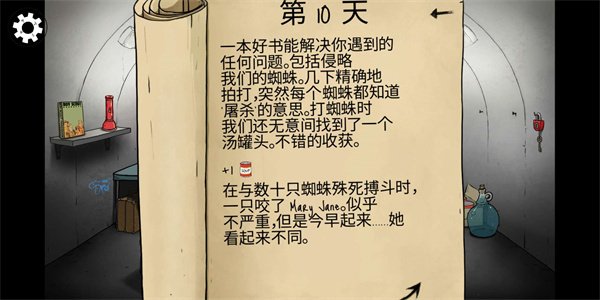 第 10 天
一本好书能解决你遇到的
任何问题。包括侵略
我们的蜘蛛。几下精确地
拍打,突然每个蜘蛛都知道
'屠杀'的意思。打蜘蛛时
我们还无意间找到了一个
汤罐头。不错的收获。
+1
SOUP
在与数十只蜘蛛殊死搏斗时,
一只咬了 Mary Jane。似乎
不严重,但是今早起来......她
看起来不同。